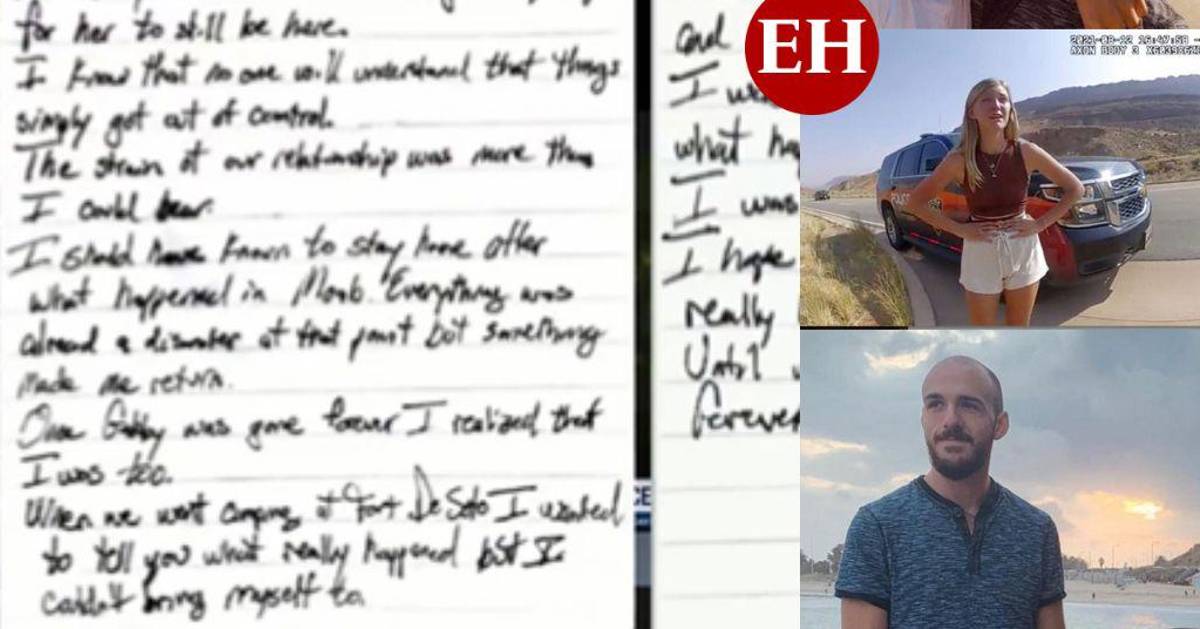 for her to still be here.
I know that no one will understand that things
simply got out of control.
The strain of our relationship was more than
I could bear.
I should have known to stay home after
what happened in Moab. Everything was
already a disaster at that point but something
made me return.
Once Gabby was gone forever I realized that
I was too.
When we went camping at Fort De Soto I wanted
to tell you what really happened but I
couldn't bring myself to.
and
I
what
I was
I hope
really
Until
forever
CE
EH
2021-08-12 16:47:58
AXON BODY 3
POLICE